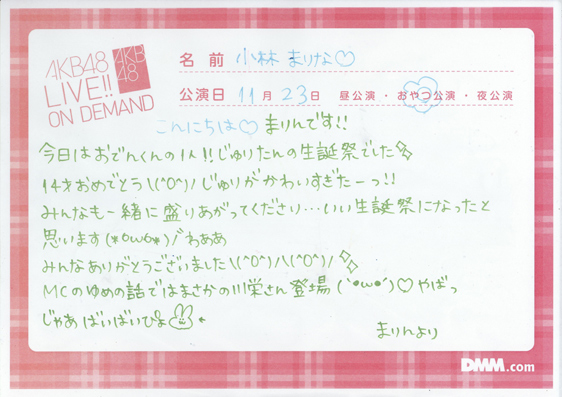 AKB48
LIVE!!
ON DEMAND
AKB
48
名前 小林 まりな♡
公演日 11月23日 昼公演・おやつ公演・夜公演
こんにちは♡ まりんです!!
今日はおでんくんの1人!!じゅりたんの生誕祭でした
14才おめでとう\(^O^)/じゅりがかわいすぎたーっ!!
みんなも一緒に盛りあがってください…いい生誕祭になったと
思います(*°ω°*)ﾉ"わぁああ
みんなありがとうございました\(^O^)/\(^O^)/
MCのゆめの話ではまさかの川栄さん登場(`・ω・´)♡やばっ
じゃあばいばいぴょ
まりんより
DMM.com